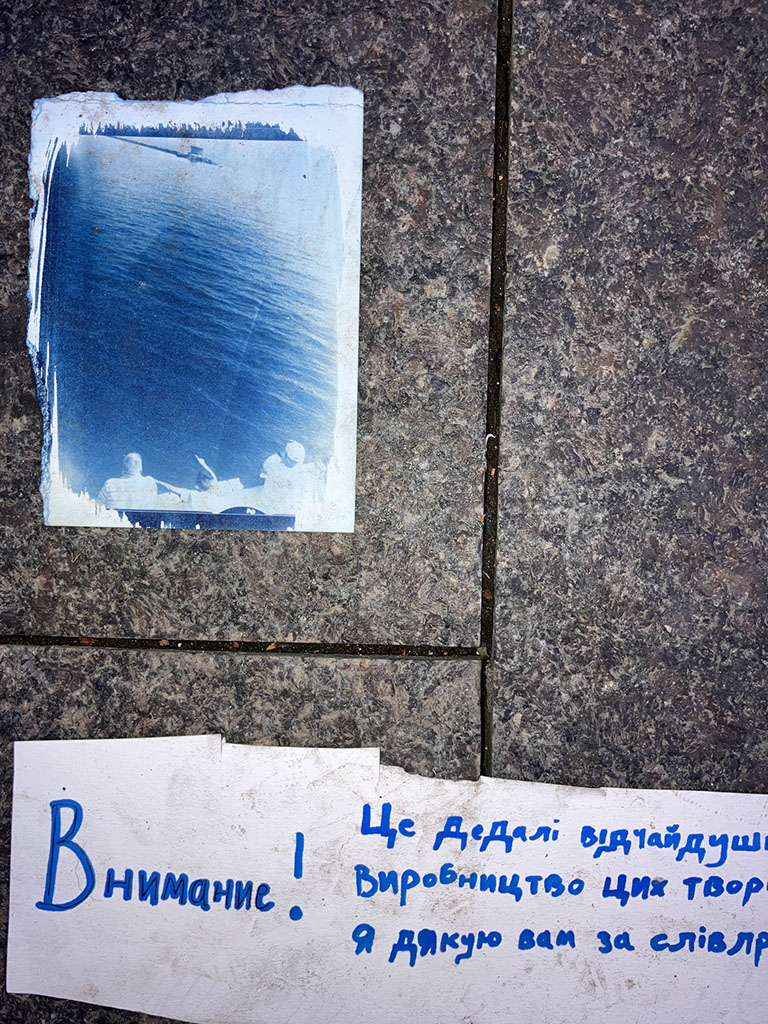 Внимание!
Це дедалі відчайдуш
Виробництво цих твор
Я дякую вам за слівпр